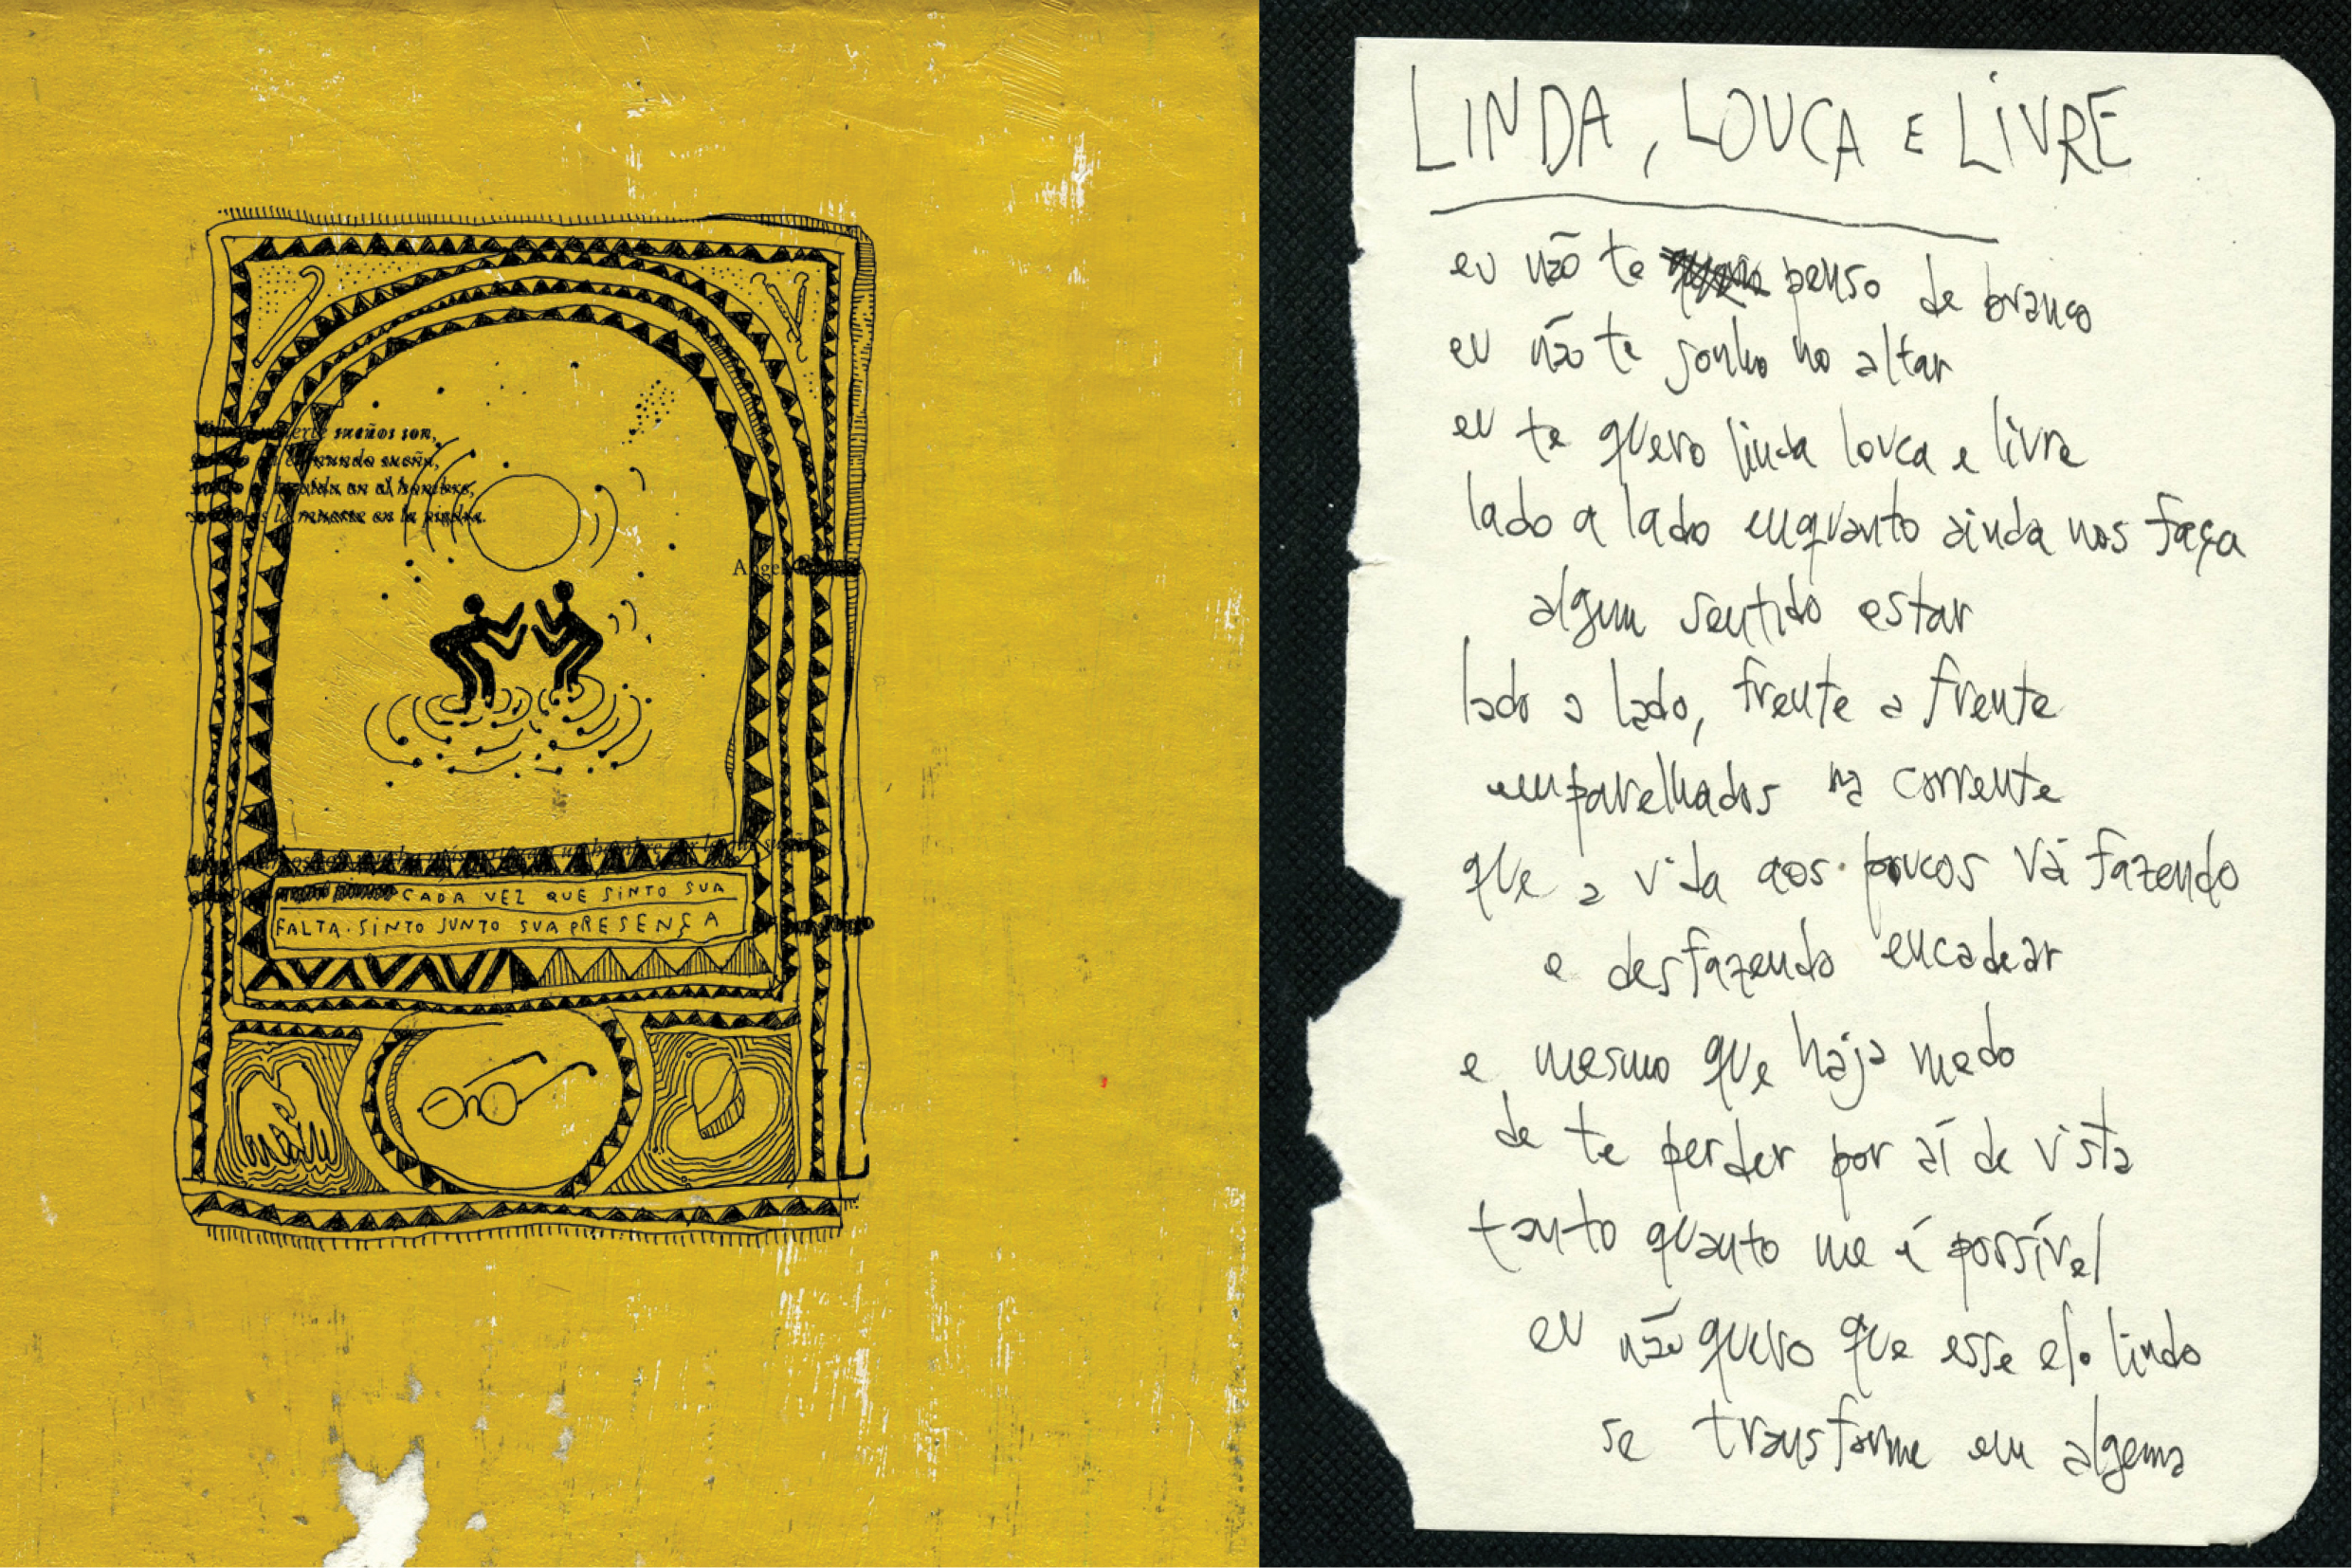 sueños son,
el mundo sueña,
la vida en el hombre,
la muerte en la piedra.
CADA VEZ QUE SINTO SUA
FALTA. SINTO JUNTO SUA PRESENÇA
LINDA, LOUCA E LIVRE
eu não te penso de branco
eu não te sonho no altar
eu te quero linda louca e livre
lado a lado enquanto ainda nos faça
algum sentido estar
lado a lado, frente a frente
emparelhados na corrente
que a vida aos poucos vá fazendo
e desfazendo encadear
e mesmo que haja medo
de te perder por aí de vista
tanto quanto me é possível
eu não quero que esse elo lindo
se transforme em algema